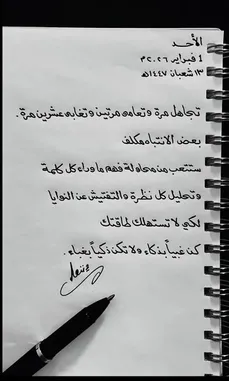 الأحد
١ فبراير ٢٠٢٦م
١٣ شعبان ١٤٤٧هـ
تجاهل مرة وتعامى مرتين وتغابى عشرين مرة.
بعض الانتباه مكلف
ستتعب من محاولة فهم ما وراء كل كلمة
وتحليل كل نظرة والتفتيش عن النوايا
لكي لا تستهلك طاقتك
كن غبياً بذكاء ولا تكن ذكياً بغباء.